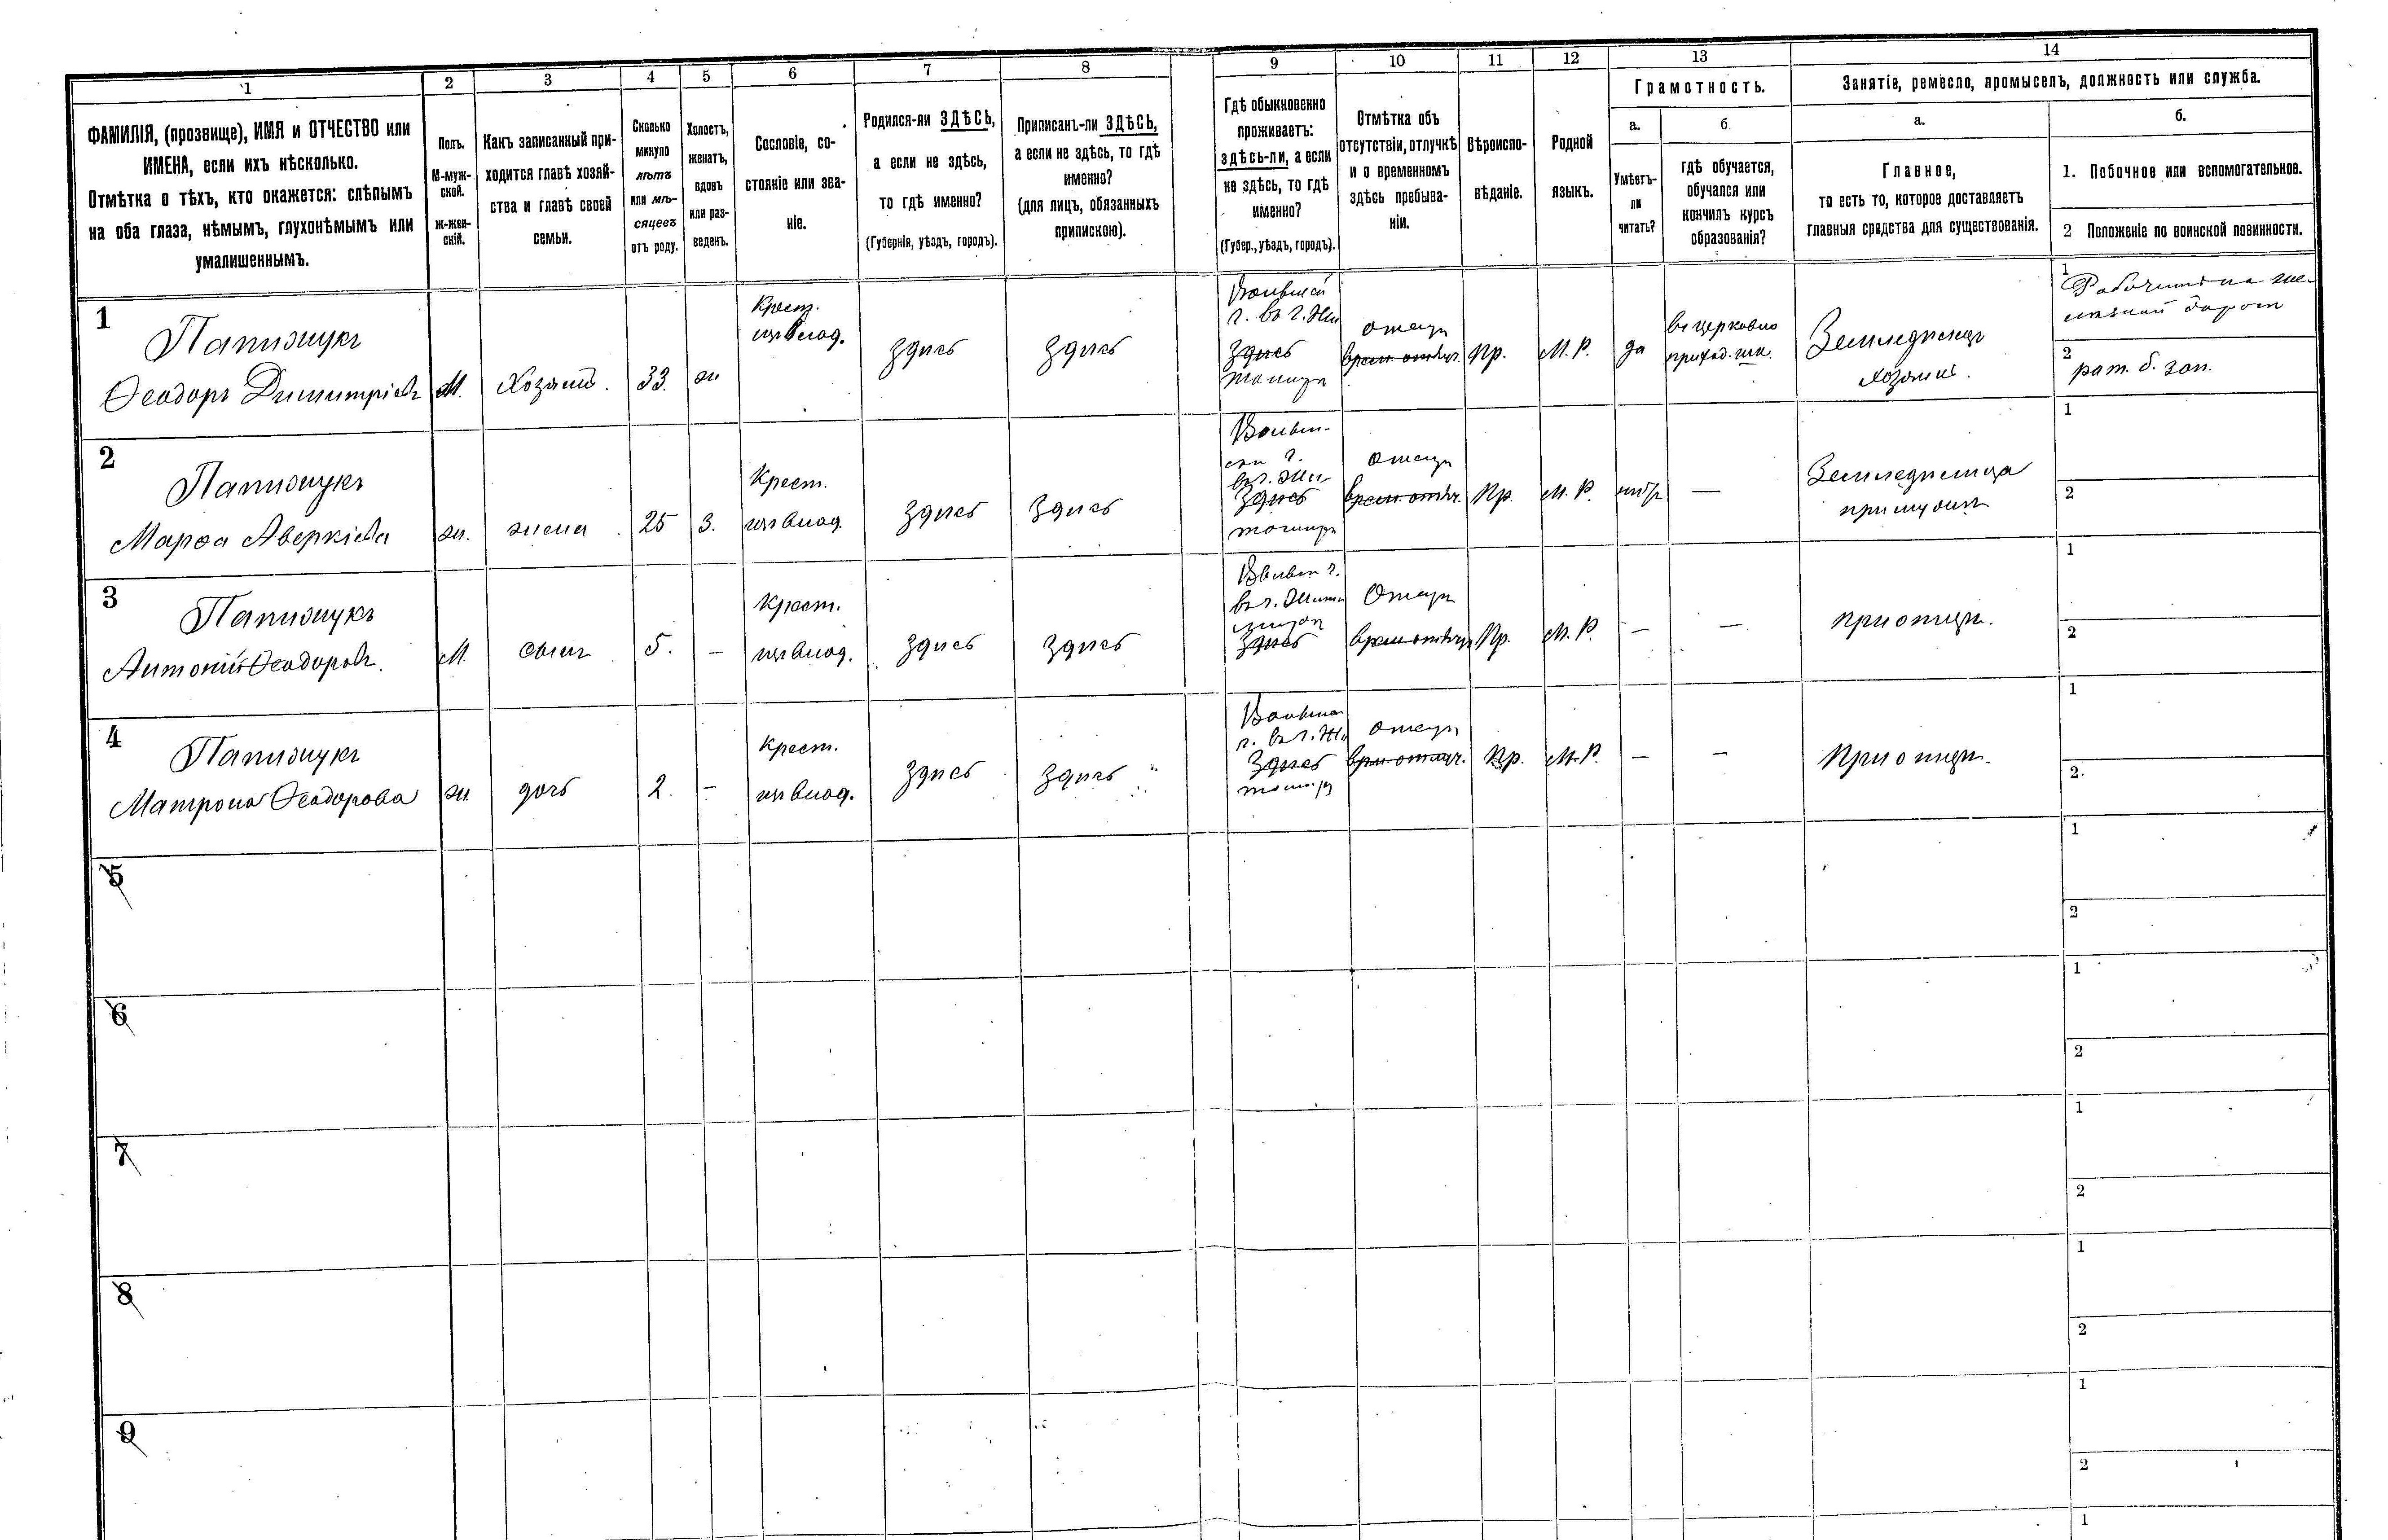 1 2 3 4 5 6 7 8 9 10 11 12 13 14
ФАМИЛІЯ, (прозвище), ИМЯ и ОТЧЕСТВО или
ИМЕНА, если ихъ нѣсколько.
Отмѣтка о тѣхъ, кто окажется: слѣпымъ
на оба глаза, нѣмымъ, глухонѣмымъ или
умалишеннымъ.
Полъ.
М-муж-
ской.
ж-жен-
скій.
Какъ записанный при-
ходится главѣ хозяй-
ства и главѣ своей
семьи.
Сколько
минуло
лѣтъ
или мѣ-
сяцевъ
отъ роду.
Холостъ,
женатъ,
вдовъ
или раз-
веденъ.
Сословіе, со-
стояніе или зва-
ніе.
Родился-ли ЗДѢСЬ,
а если не здѣсь,
то гдѣ именно?
(Губернія, уѣздъ, городъ).
Приписанъ-ли ЗДѢСЬ,
а если не здѣсь, то гдѣ
именно?
(для лицъ, обязанныхъ
припискою).
Гдѣ обыкновенно
проживаетъ:
здѣсь-ли, а если
не здѣсь, то гдѣ
именно?
(Губер., уѣздъ, городъ).
Отмѣтка объ
отсутствіи, отлучкѣ
и о временномъ
здѣсь пребыва-
ніи.
Вѣроиспо-
вѣданіе.
Родной
языкъ.
Грамотность.
а.
Умѣетъ-
ли
читать?
б.
гдѣ обучается,
обучался или
кончилъ курсъ
образованія?
Занятіе, ремесло, промыселъ, должность или служба.
а.
Главное,
то есть то, которое доставляетъ
главныя средства для существованія.
б.
1. Побочное или вспомогательное.
2 Положеніе по воинской повинности.
1
Папижукъ
Ѳеодоръ Димитріевъ
М.
Хозяинъ.
33.
ж
Крест.
изъ влад.
здѣсь
здѣсь
г. въ г. Жи
здѣсь
томиръ
отсут
врем. отлуч.
Пр.
М. Р.
да
въ церковно
приход. шк.
Земледѣлецъ
хозяинъ.
1
Рабочимъ на же-
лѣзной дорогѣ
2
рат. б. зап.
2
Папижукъ
Марѳа Аверкіева
ж.
жена
25
З.
Крест.
изъ влад.
здѣсь
здѣсь
г.
въ г. Жи-
здѣсь
томиръ
отсут
врем. отлуч.
Пр.
М. Р.
нѣтъ
—
Земледѣлица
при мужѣ
1
2
3
Папижукъ
Антоній Ѳеодоровъ.
М.
сынъ
5.
—
Крест.
изъ влад.
здѣсь
здѣсь
въ г. Жито
здѣсь
Отсут
врем. отлуч
Пр.
М. Р.
—
—
при отцѣ.
1
2
4
Папижукъ
Матрона Ѳеодорова
ж.
дочь
2.
—
Крест.
изъ влад.
здѣсь
здѣсь
г. въ г. Жи
здѣсь
томиръ
отсут
врем. отлуч.
Пр.
М. Р.
—
—
При отцѣ.
1
2.
5
1
2
6
1
2
7
1
2
8
1
2
9
1
2
1